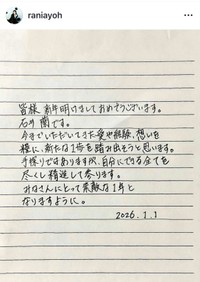 raniayoh
皆様 新年明けましておめでとうございます。
石井 蘭です。
今までいただいてきた愛や経験、想いを
糧に、新たな1歩を踏み出そうと思います。
手探りではありますが、自分にできる全てを
尽くし精進して参ります。
みなさんにとって素敵な1年と
なりますように。
2026.1.1